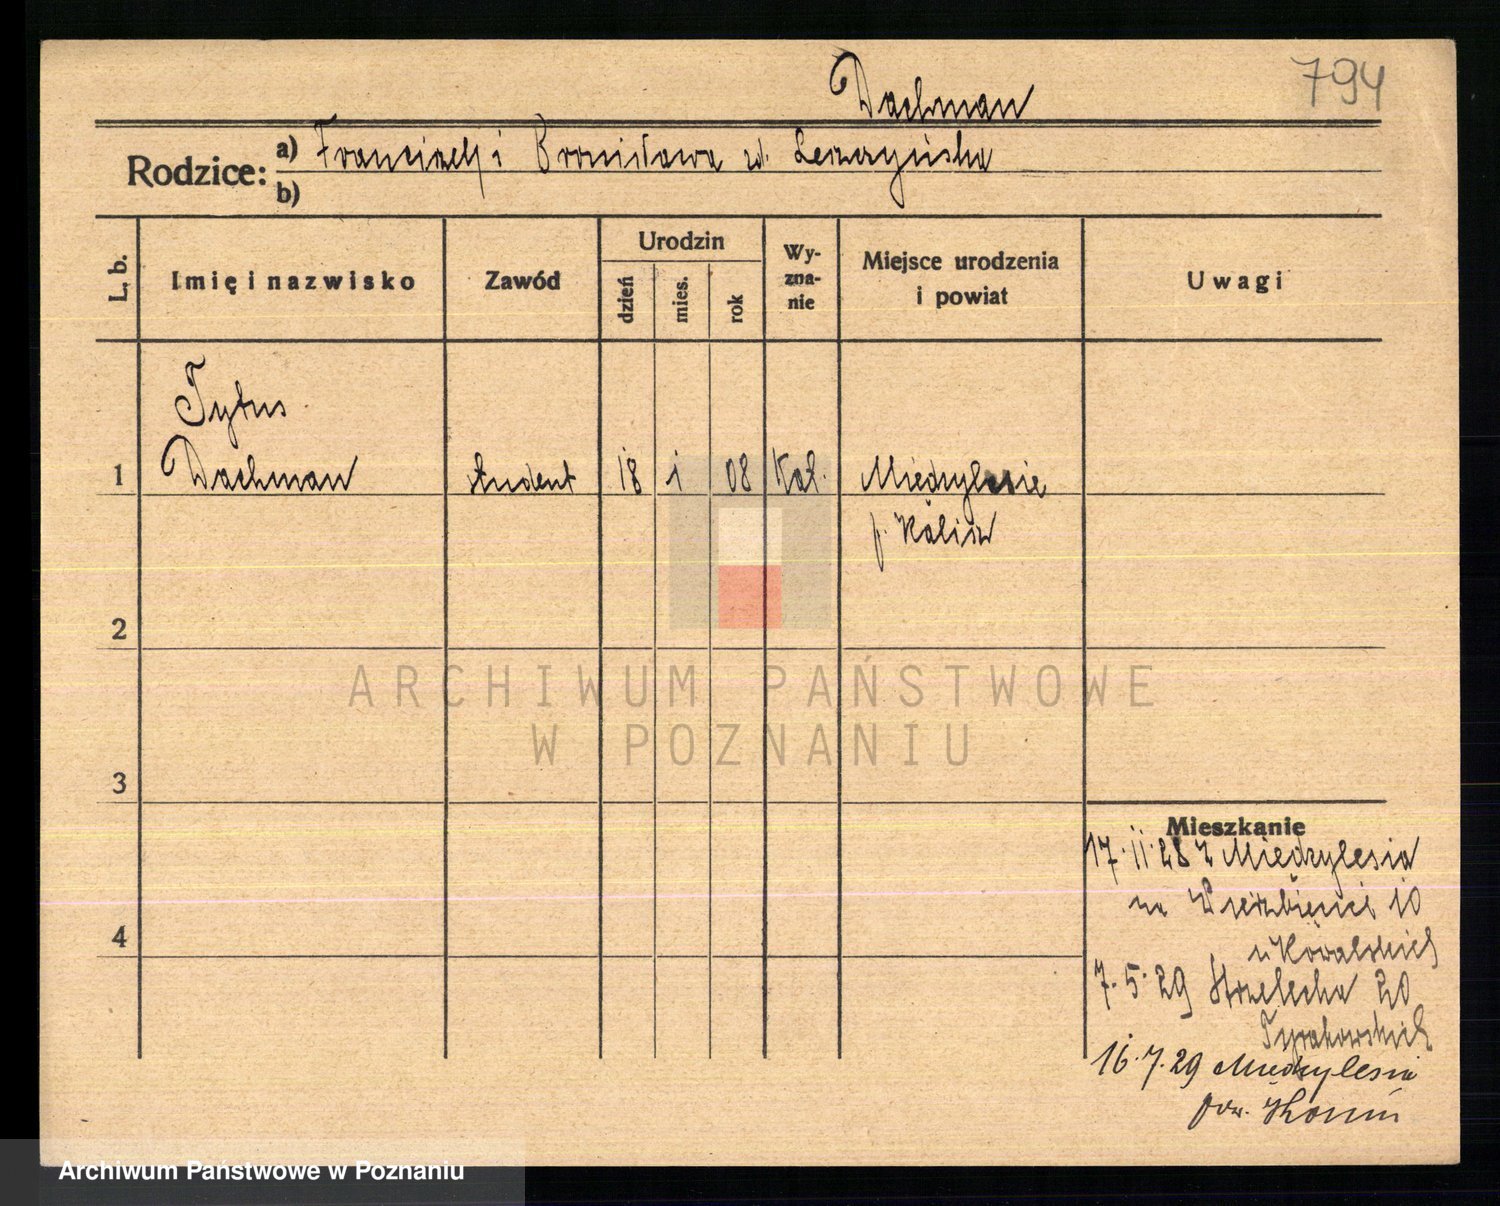 794
Dachman
Rodzice: a) Franciszek i Bronisława zd. Leszczyńska
b)
L. b.
Imię i nazwisko
Zawód
Urodzin
dzień
mies.
rok
Wy-
zna-
nie
Miejsce urodzenia
i powiat
Uwagi
Tytus
1 Dachman student 18 1 08 Kat. Międzylesie
p. Kalisz
2
3
4
Mieszkanie
17.11.28 z Międzylesia
na Wierzbięcice 10
u Kowalskich
7.5.29 Strzelecka 20
16.7.29 Międzylesie
pow. Konin
ARCHIWUM PAŃSTWOWE
W POZNANIU
Archiwum Państwowe w Poznaniu